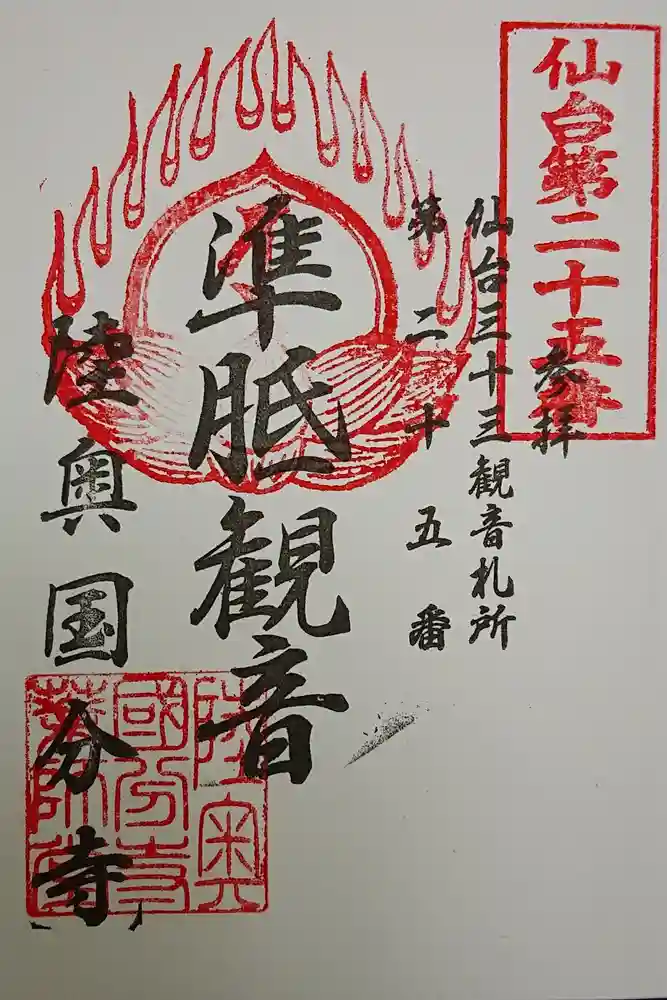 仙台第二十五番
参拝
仙台三十三観音札所
第二十五番
準胝観音
陸奥国分寺
陸奥
國分寺
薬師堂